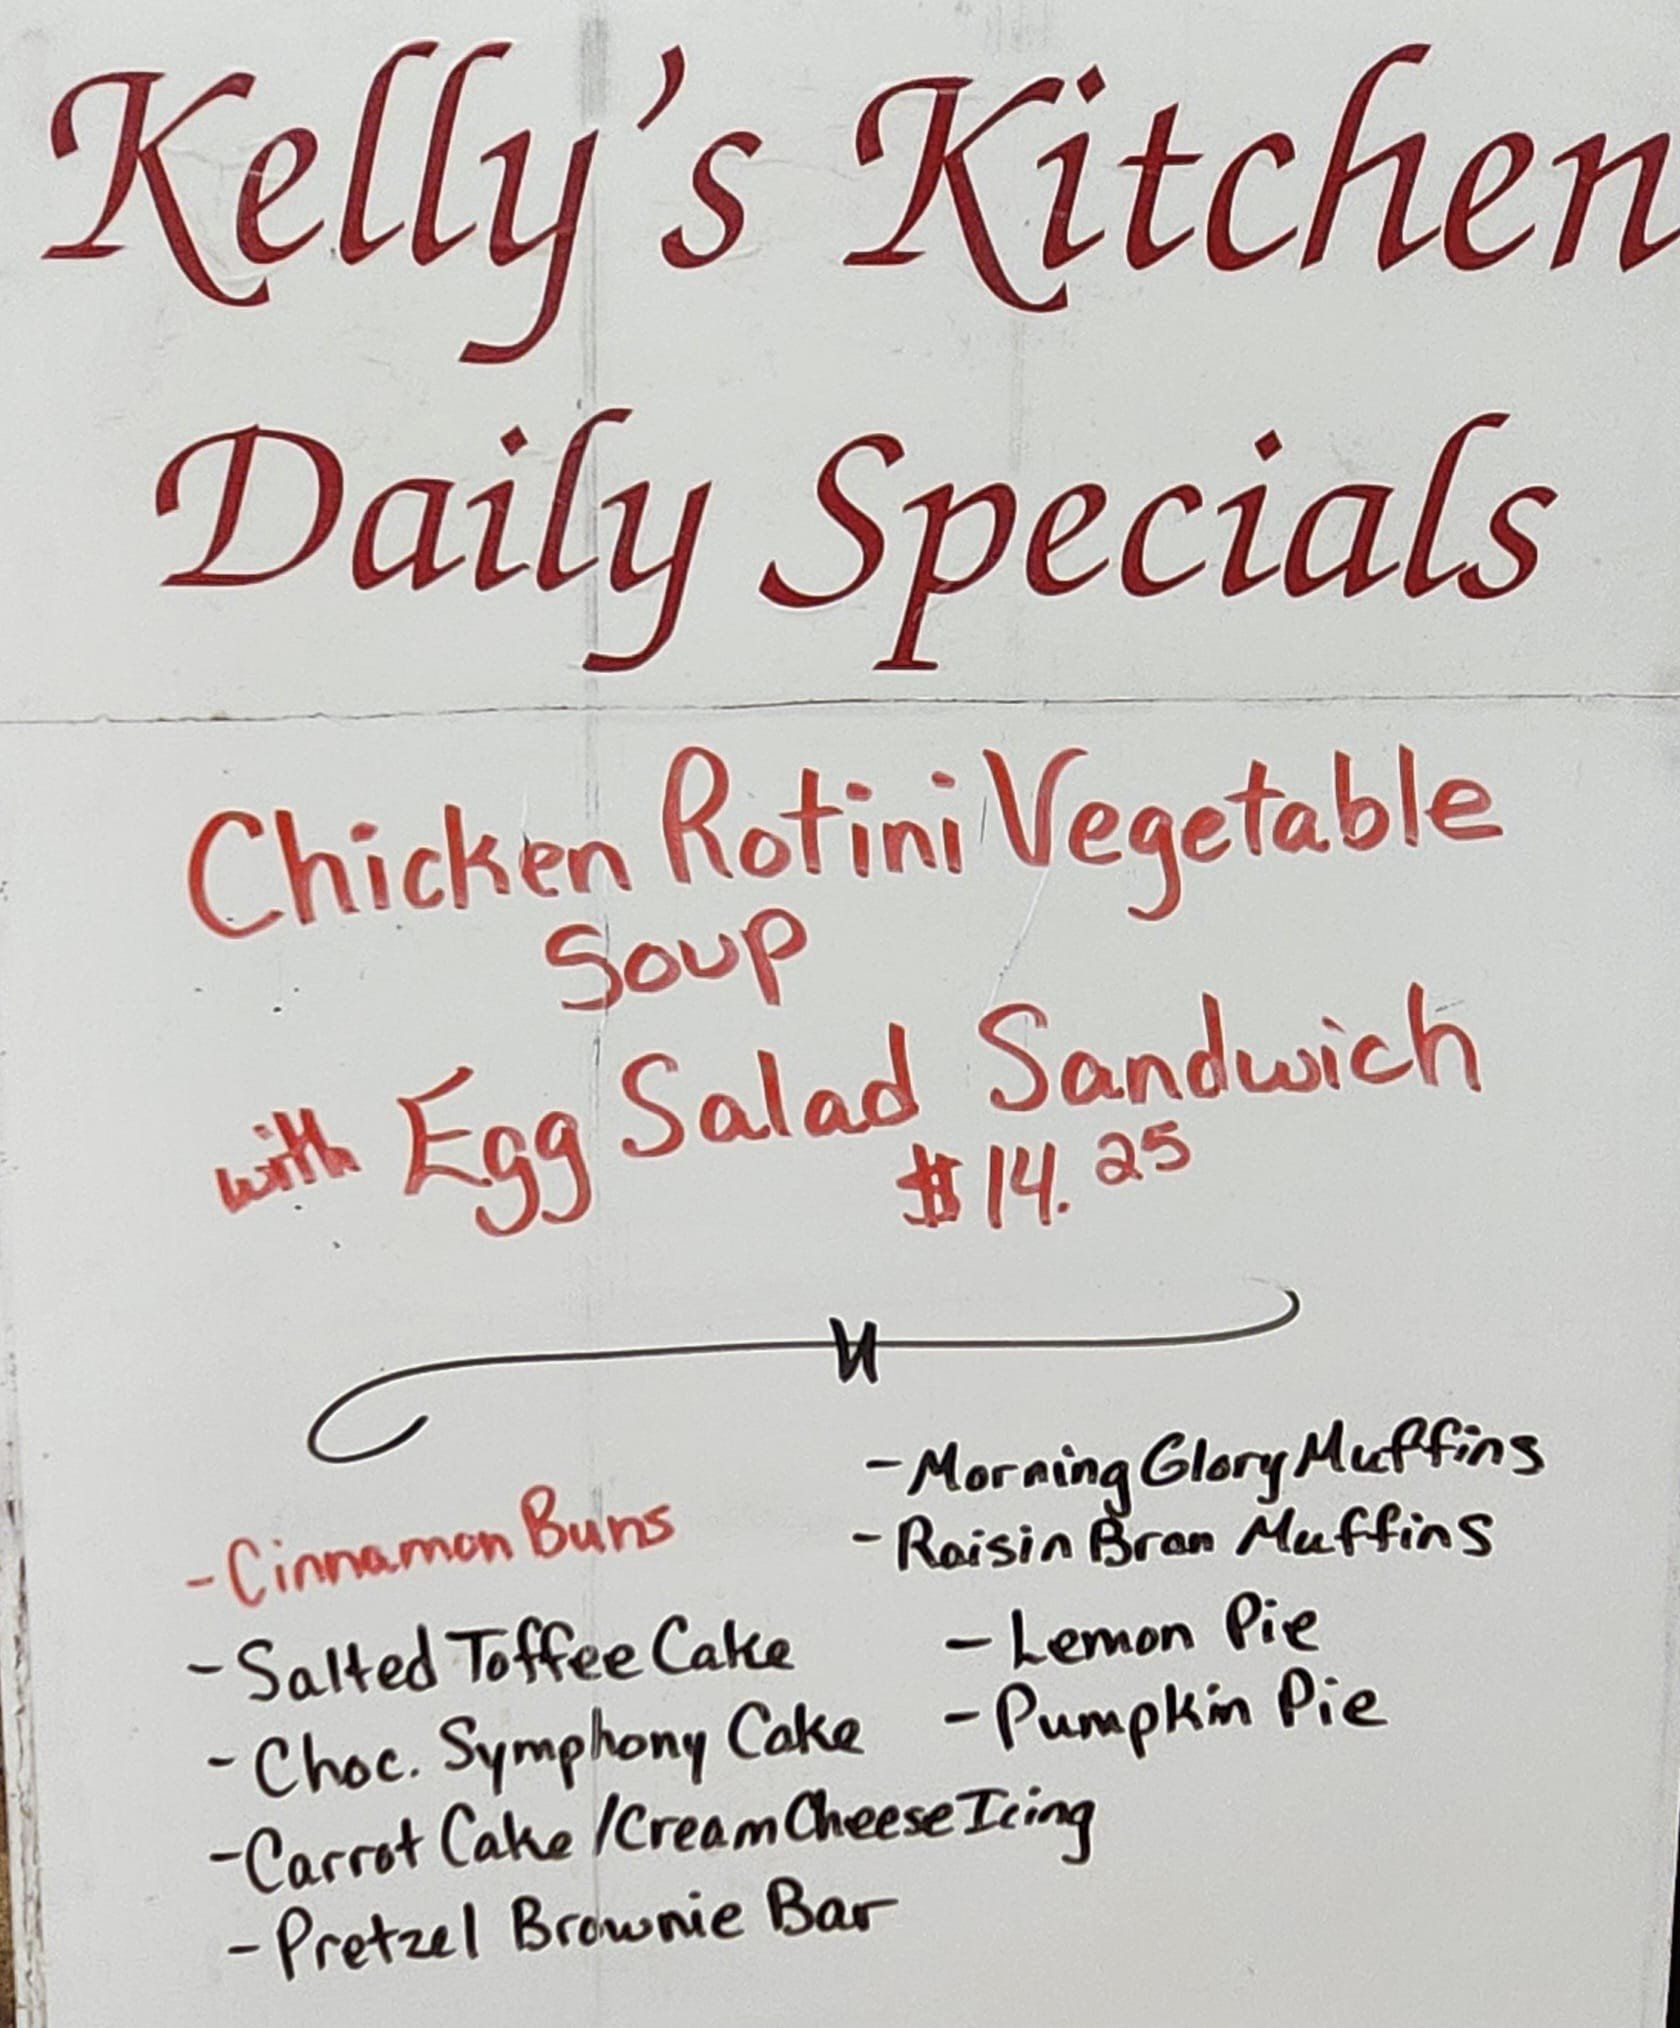 Kelly's Kitchen
Daily Specials
Chicken Rotini Vegetable
Soup
with Egg Salad Sandwich
$14.25
-Cinnamon Buns
-Salted Toffee Cake
-Choc. Symphony Cake
-Carrot Cake/Cream Cheese Icing
-Pretzel Brownie Bar
-Morning Glory Muffins
-Raisin Bran Muffins
-Lemon Pie
-Pumpkin Pie